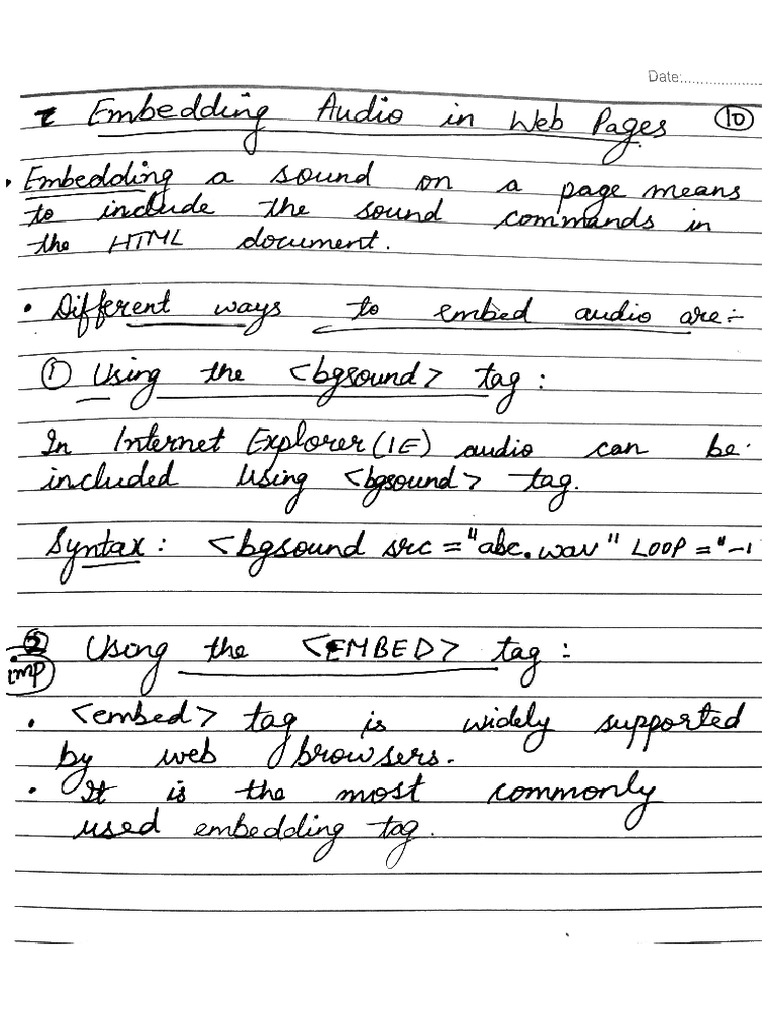 Date:....................
Embedding Audio in Web Pages 10
• Embedding a sound on a page means
to include the sound commands in
the HTML document.
• Different ways to embed audio are:-
① Using the <bgsound> tag:
In Internet Explorer (IE) audio can be
included using <bgsound> tag.
Syntax: <bgsound src="abc.wav" LOOP="-1
② Using the <EMBED> tag:
imp
• <embed> tag is widely supported
by web browsers.
• It is the most commonly
used embedding tag.